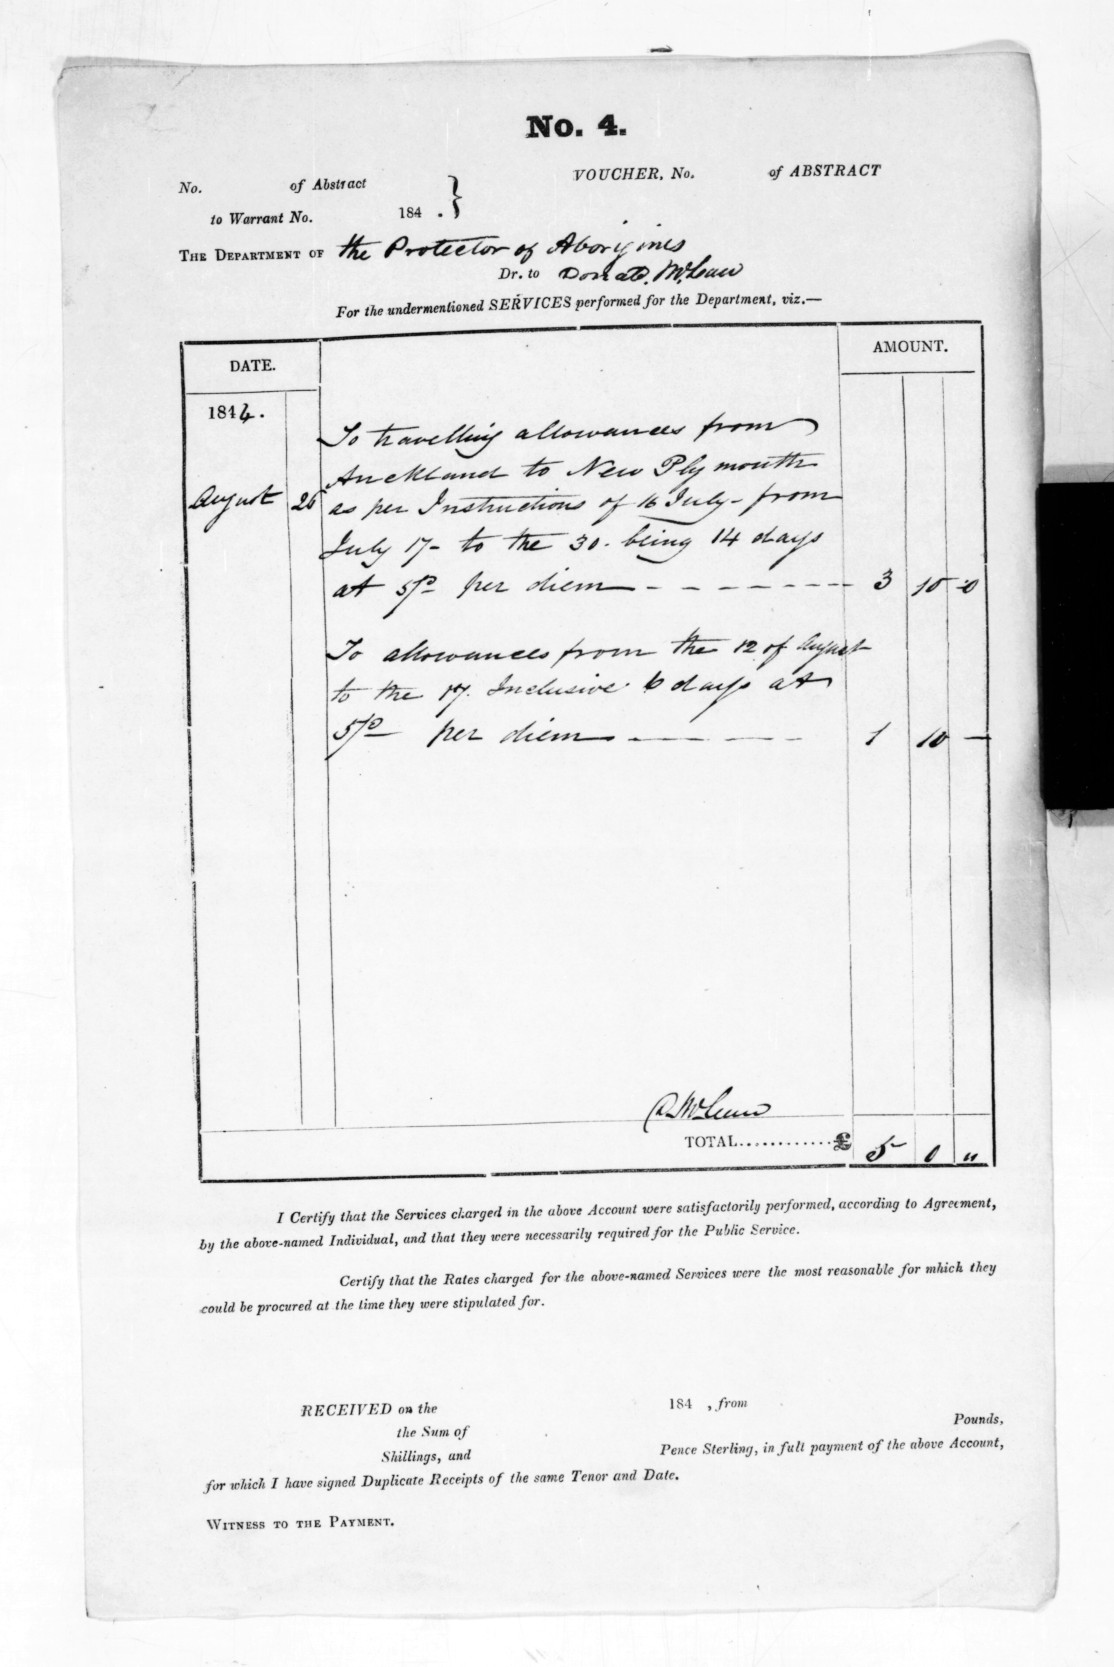 No. 4.
No. of Abstract
VOUCHER, No. of ABSTRACT
to Warrant No. 184 . }
THE DEPARTMENT OF the Protector of Aborigines
Dr. to Donald McLean
For the undermentioned SERVICES performed for the Department, viz.—
DATE.
AMOUNT.
1844.
To travelling allowances from
Auckland to New Plymouth
August 26 as per Instructions of 16 July - from
July 17 - to the 30 - being 14 days
at 5/0 per diem - - - - - - - 3 10 0
To allowances from the 12 of August
to the 17. Inclusive 6 days at
5/0 per diem - - - - - 1 10 —
D. McLean
TOTAL............£ 5 0 "
I Certify that the Services charged in the above Account were satisfactorily performed, according to Agreement,
by the above-named Individual, and that they were necessarily required for the Public Service.
Certify that the Rates charged for the above-named Services were the most reasonable for which they
could be procured at the time they were stipulated for.
RECEIVED on the 184 , from
the Sum of Pounds,
Shillings, and Pence Sterling, in full payment of the above Account,
for which I have signed Duplicate Receipts of the same Tenor and Date.
WITNESS TO THE PAYMENT.